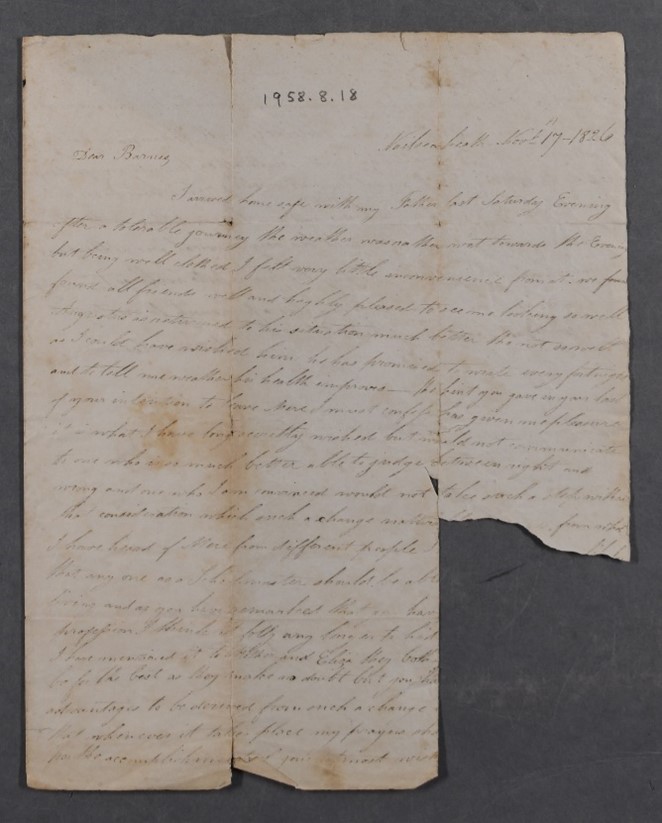 1958.8.18
Novr 17 - 1826
Dear Barnes,
I arrived home safe with my Father last Saturday Evening
after a tolerable journey the weather was rather wet towards the
but being well clothed I felt very little inconvenience from it. we
found all friends well and highly pleased to see me looking so well
Augustus is returned to his situation much better tho not so well
as I could have wished him, he has promised to write every fortnight
and to tell me weather his health improves — the hint you gave in your last
of your intention to leave Mere I must confess has given me pleasure
it is what I have long secretly wished but would not communicate
to one who is so much better able to judge between right and
wrong and one who I am convinced would not take such a step without
the consideration which such a change from
I have heard of Mere from different people
that any one as a Schoolmaster should be
living and as you have remarked that
profession I think it folly any longer to
I have mentioned it to Father and Eliza they both
be for the best as they make no doubt but you
advantages to be derived from such a change
that whenever it takes place my prayers
for the accomplishment of your utmost